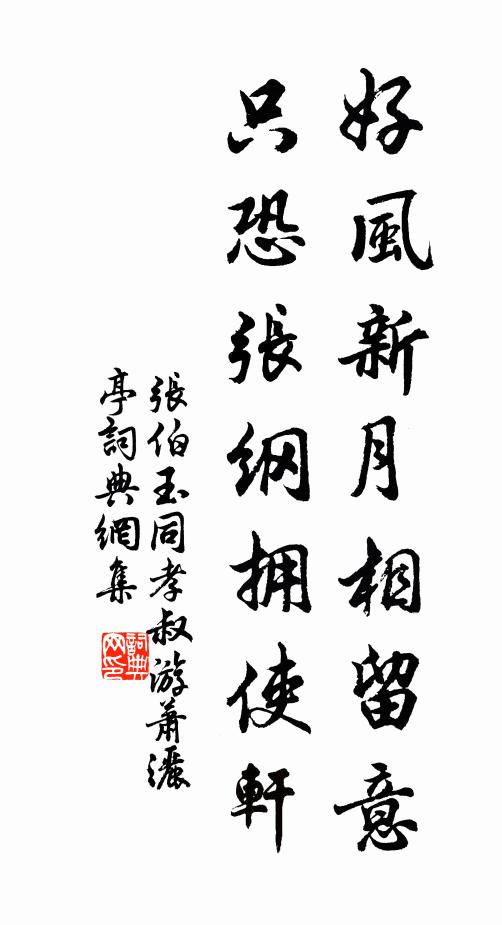 好風新月相留意
只恐張綱拥使軒
張伯玉同孝叔游蕭灑
亭詞典網集
詞典網印